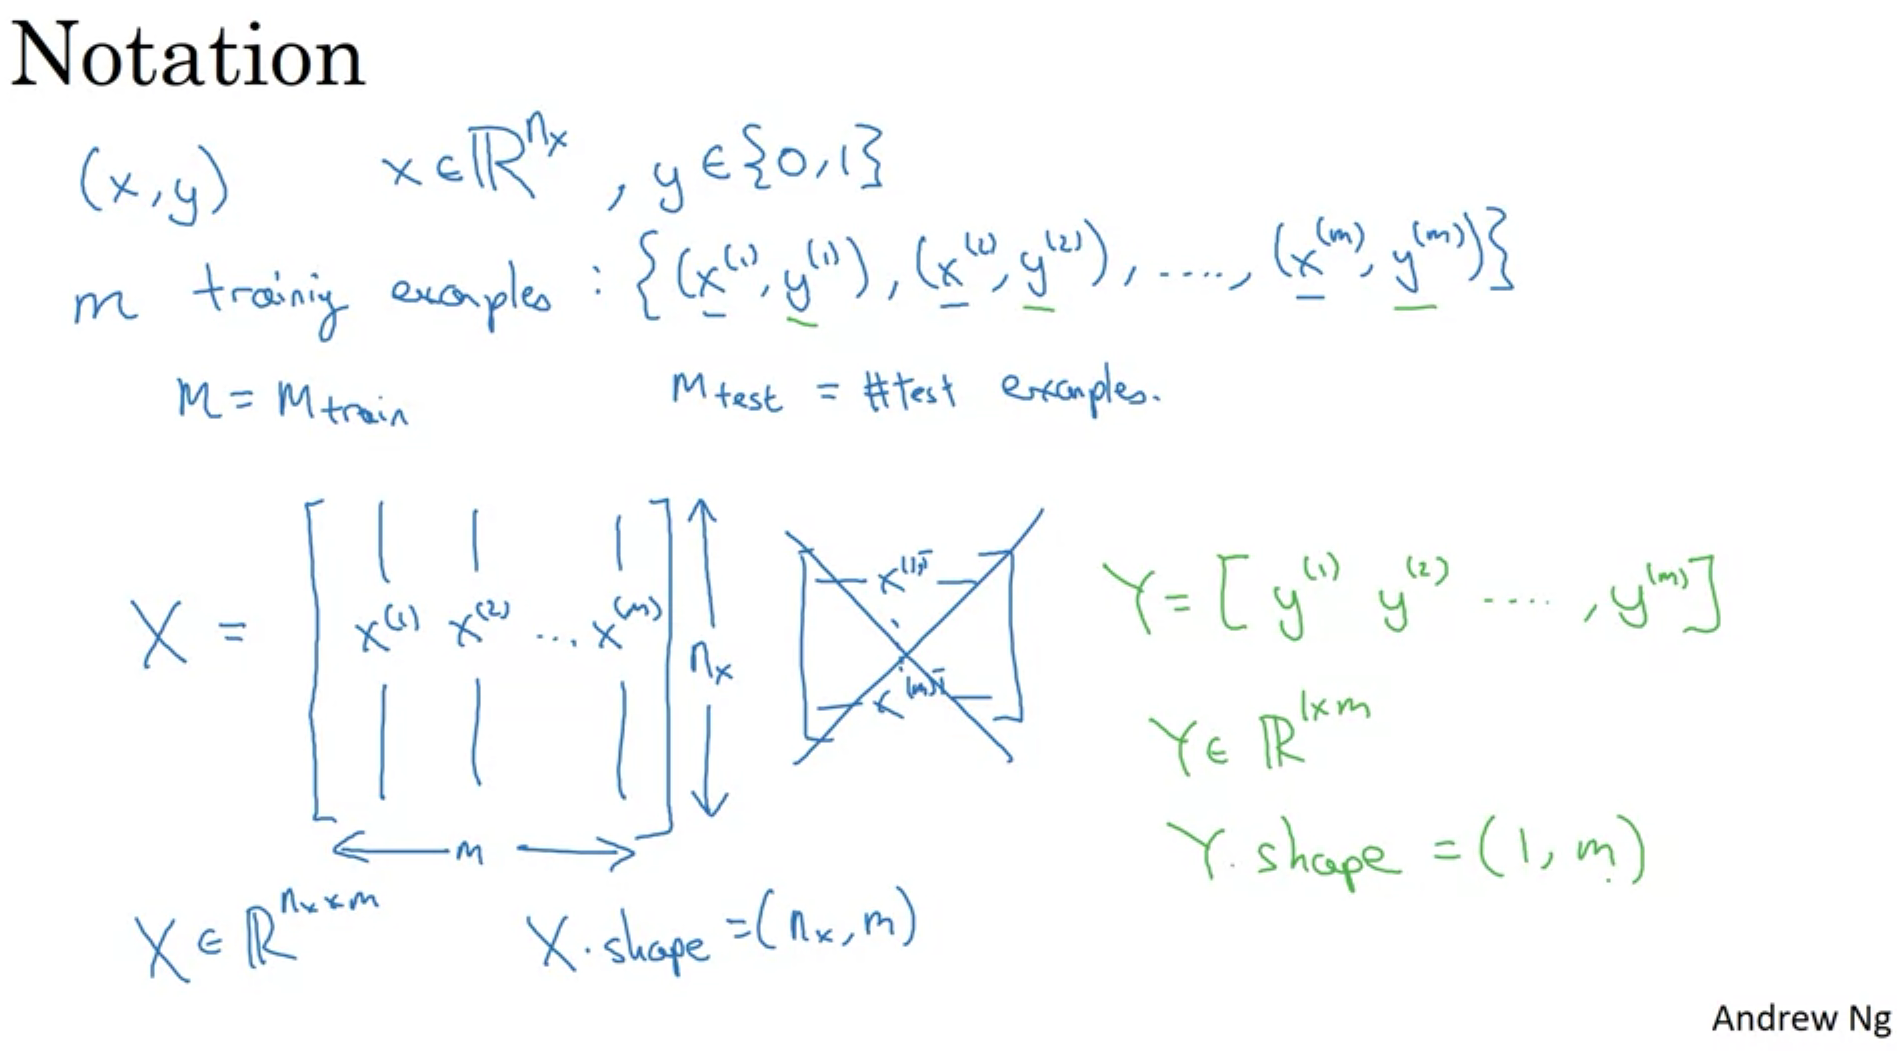 Notation
(x,y) x∈ℝ^{n_x}, y∈{0,1}
m training examples : {(x^{(1)}, y^{(1)}), (x^{(2)}, y^{(2)}), ...., (x^{(m)}, y^{(m)})}
M = M_{train} M_{test} = #test examples.
X = [x^{(1)} x^{(2)} ... x^{(m)}] n_x
m
x^{(1)T}
x^{(m)T}
Y = [y^{(1)} y^{(2)} ...., y^{(m)}]
Y∈ℝ^{1×m}
Y.shape = (1, m)
X∈ℝ^{n_x×m} X.shape = (n_x, m)
Andrew Ng